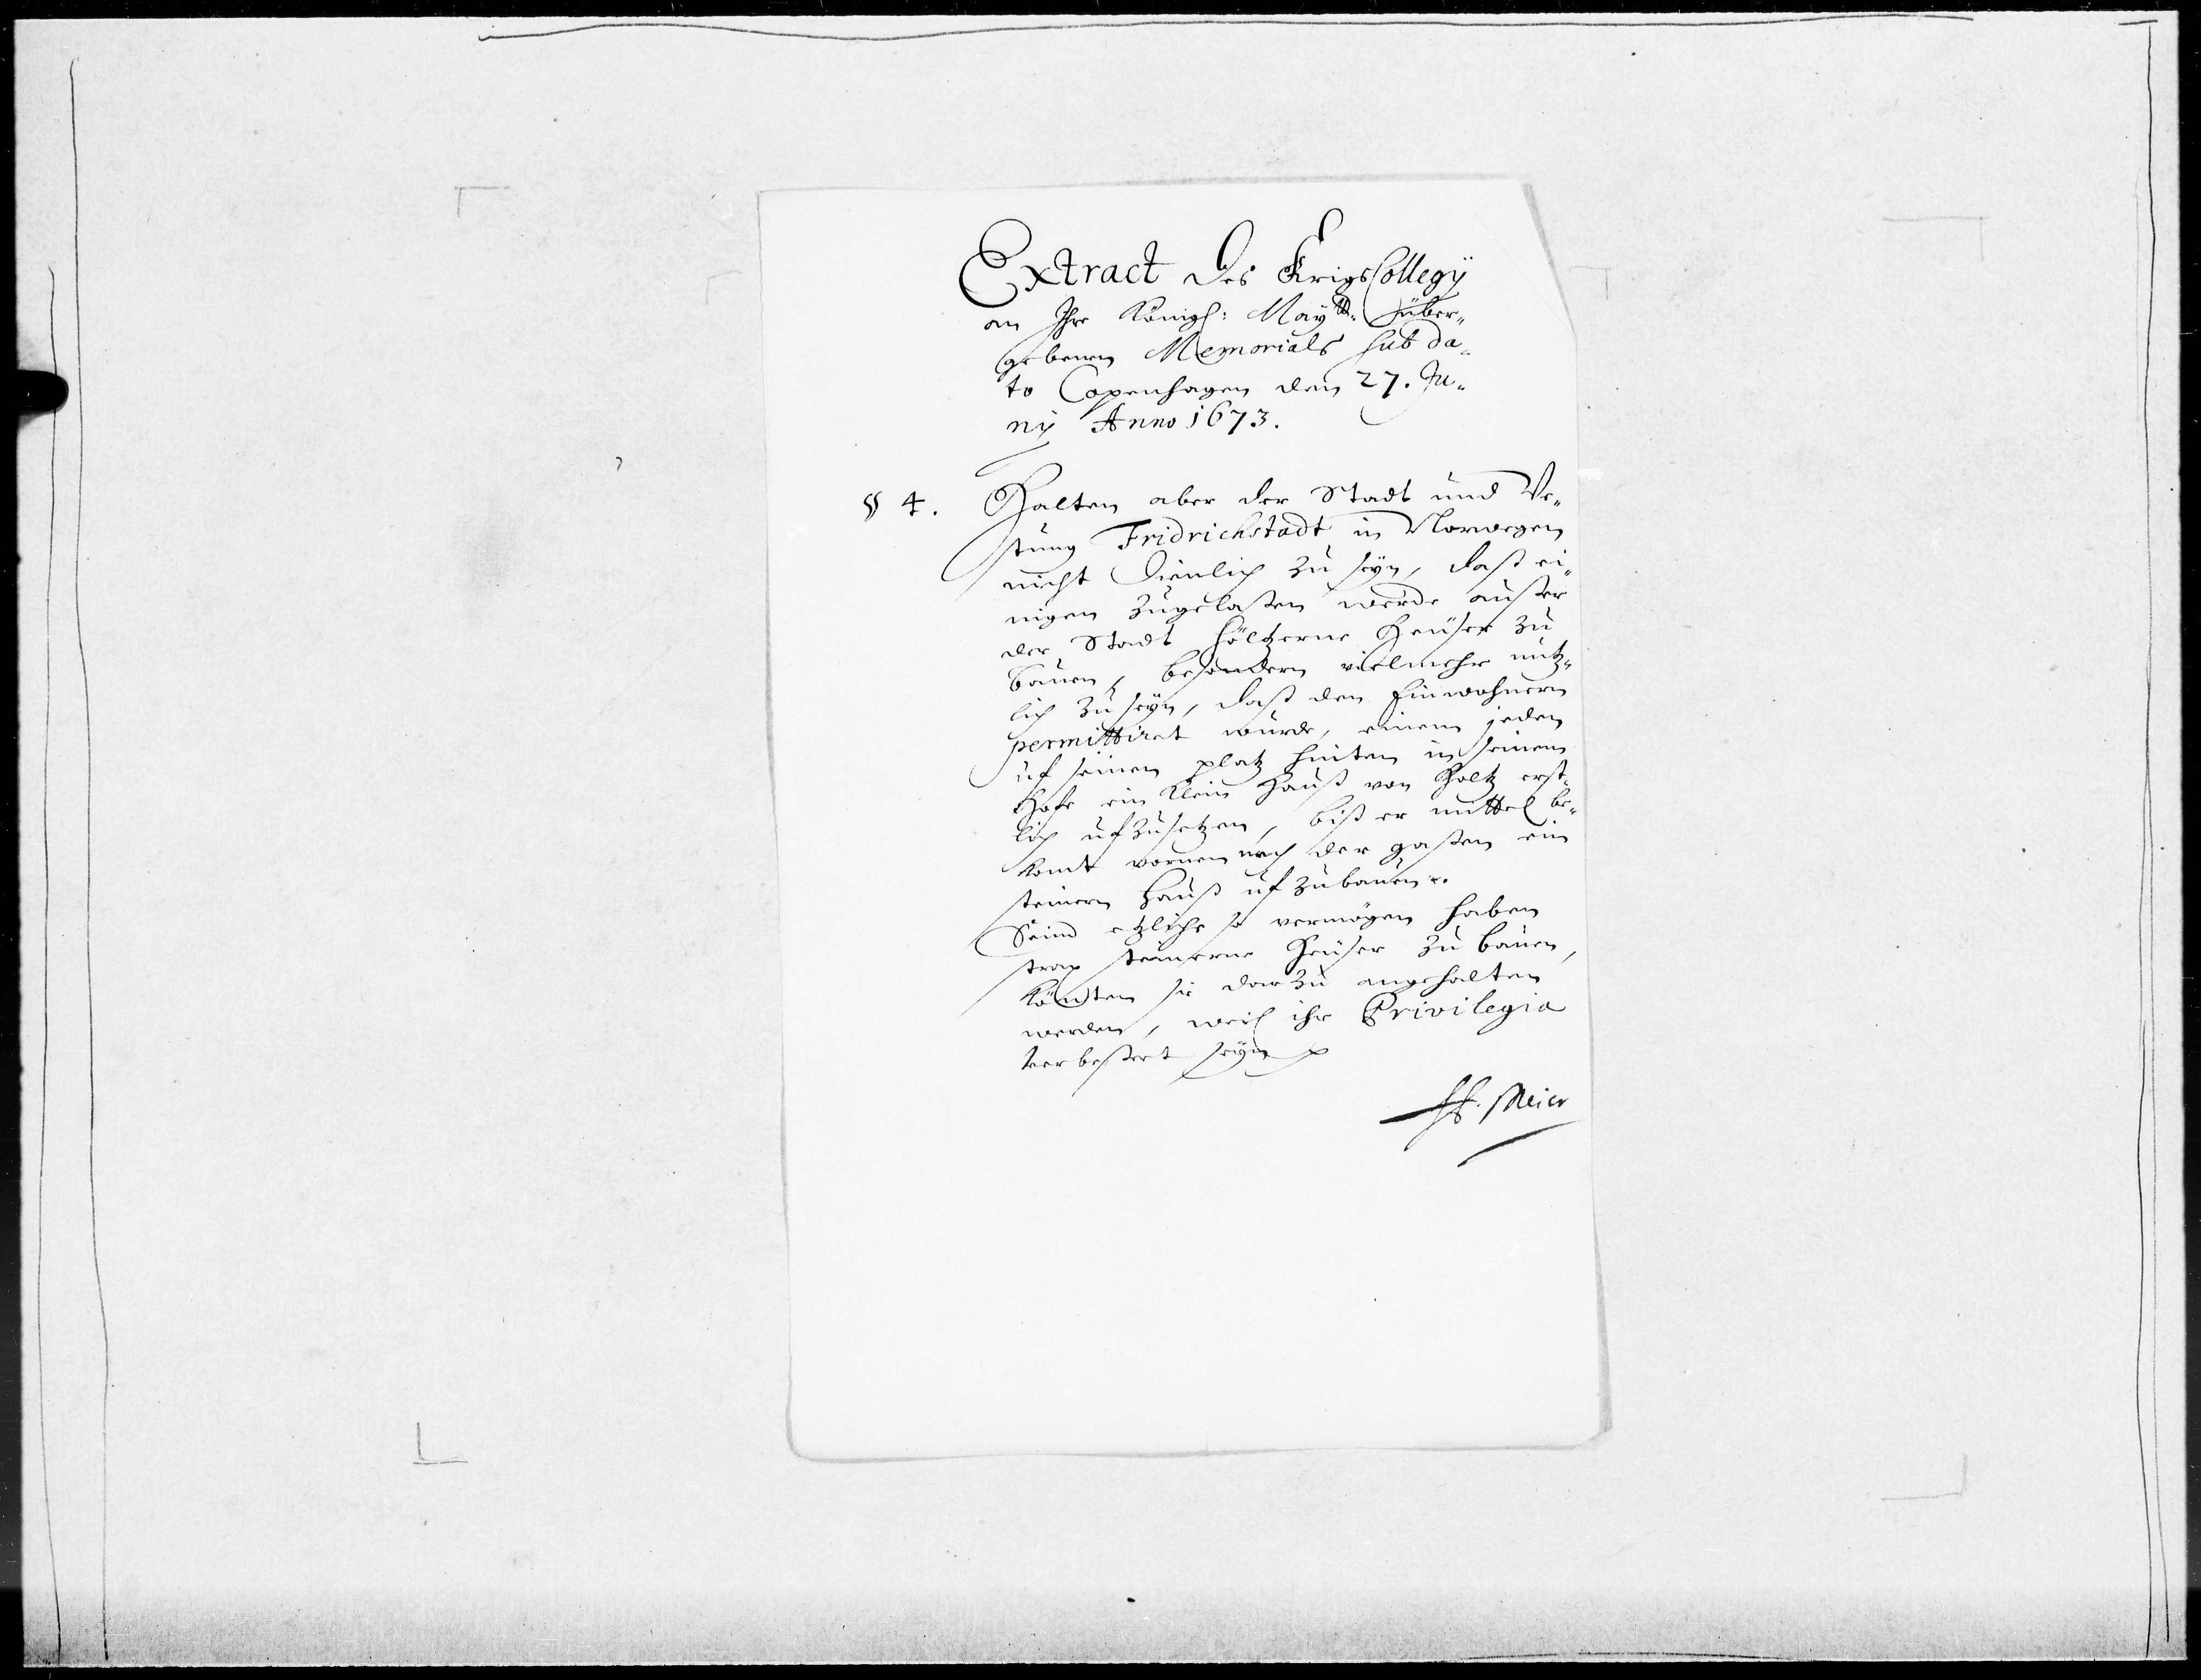 Extract des KrigsCollegÿ
an Ihre Königl: Maytt: über-
gebenen Memorials sub da-
to Copenhagen den 27. Ju-
nÿ Anno 1673.
§ 4. Halten aber der Stadt und Ve-
stung Fridrichstadt in Norwegen
nicht dienlich zu seyn, daß ei-
nigen zugelaßen werde außer
der Stadt höltzerne Heuser zu
bauen, besondern vielmehr nutz-
lich zu seyn, daß den Einwohnern
permittiret würde, einem jeden
uf seinen platz hinten in seinem
Hofe ein klein Hauß von Holtz erst-
lich ufzusetzen, biß er mittel be-
komt vornen nach der gaßen ein
steinern Hauß ufzubauen.
Seind etzliche so vermögen haben
strax steinerne Heuser zu bauen,
könten sie darzu angehalten
werden, weil ihr Privilegia
verbeßert seyn
Meier